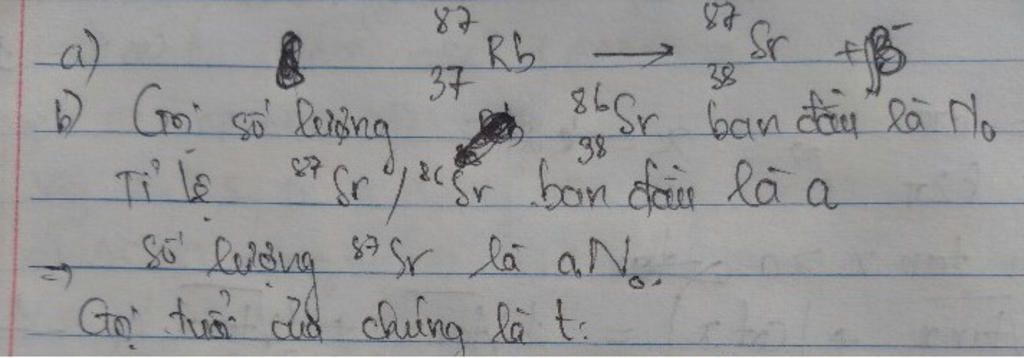 a) ⁸⁷₃₇Rb → ⁸⁷₃₈Sr + β⁻
b) Gọi số lượng ⁸⁶₃₈Sr ban đầu là N₀
Tỉ lệ ⁸⁷Sr/⁸⁶Sr ban đầu là a
→ số lượng ⁸⁷Sr là aN₀.
Gọi tuổi của chúng là t: